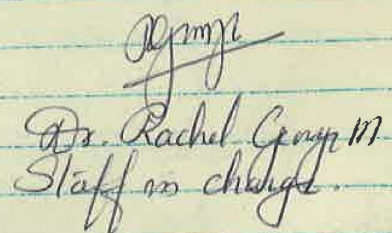 Dr. Rachel George M
Staff in charge.